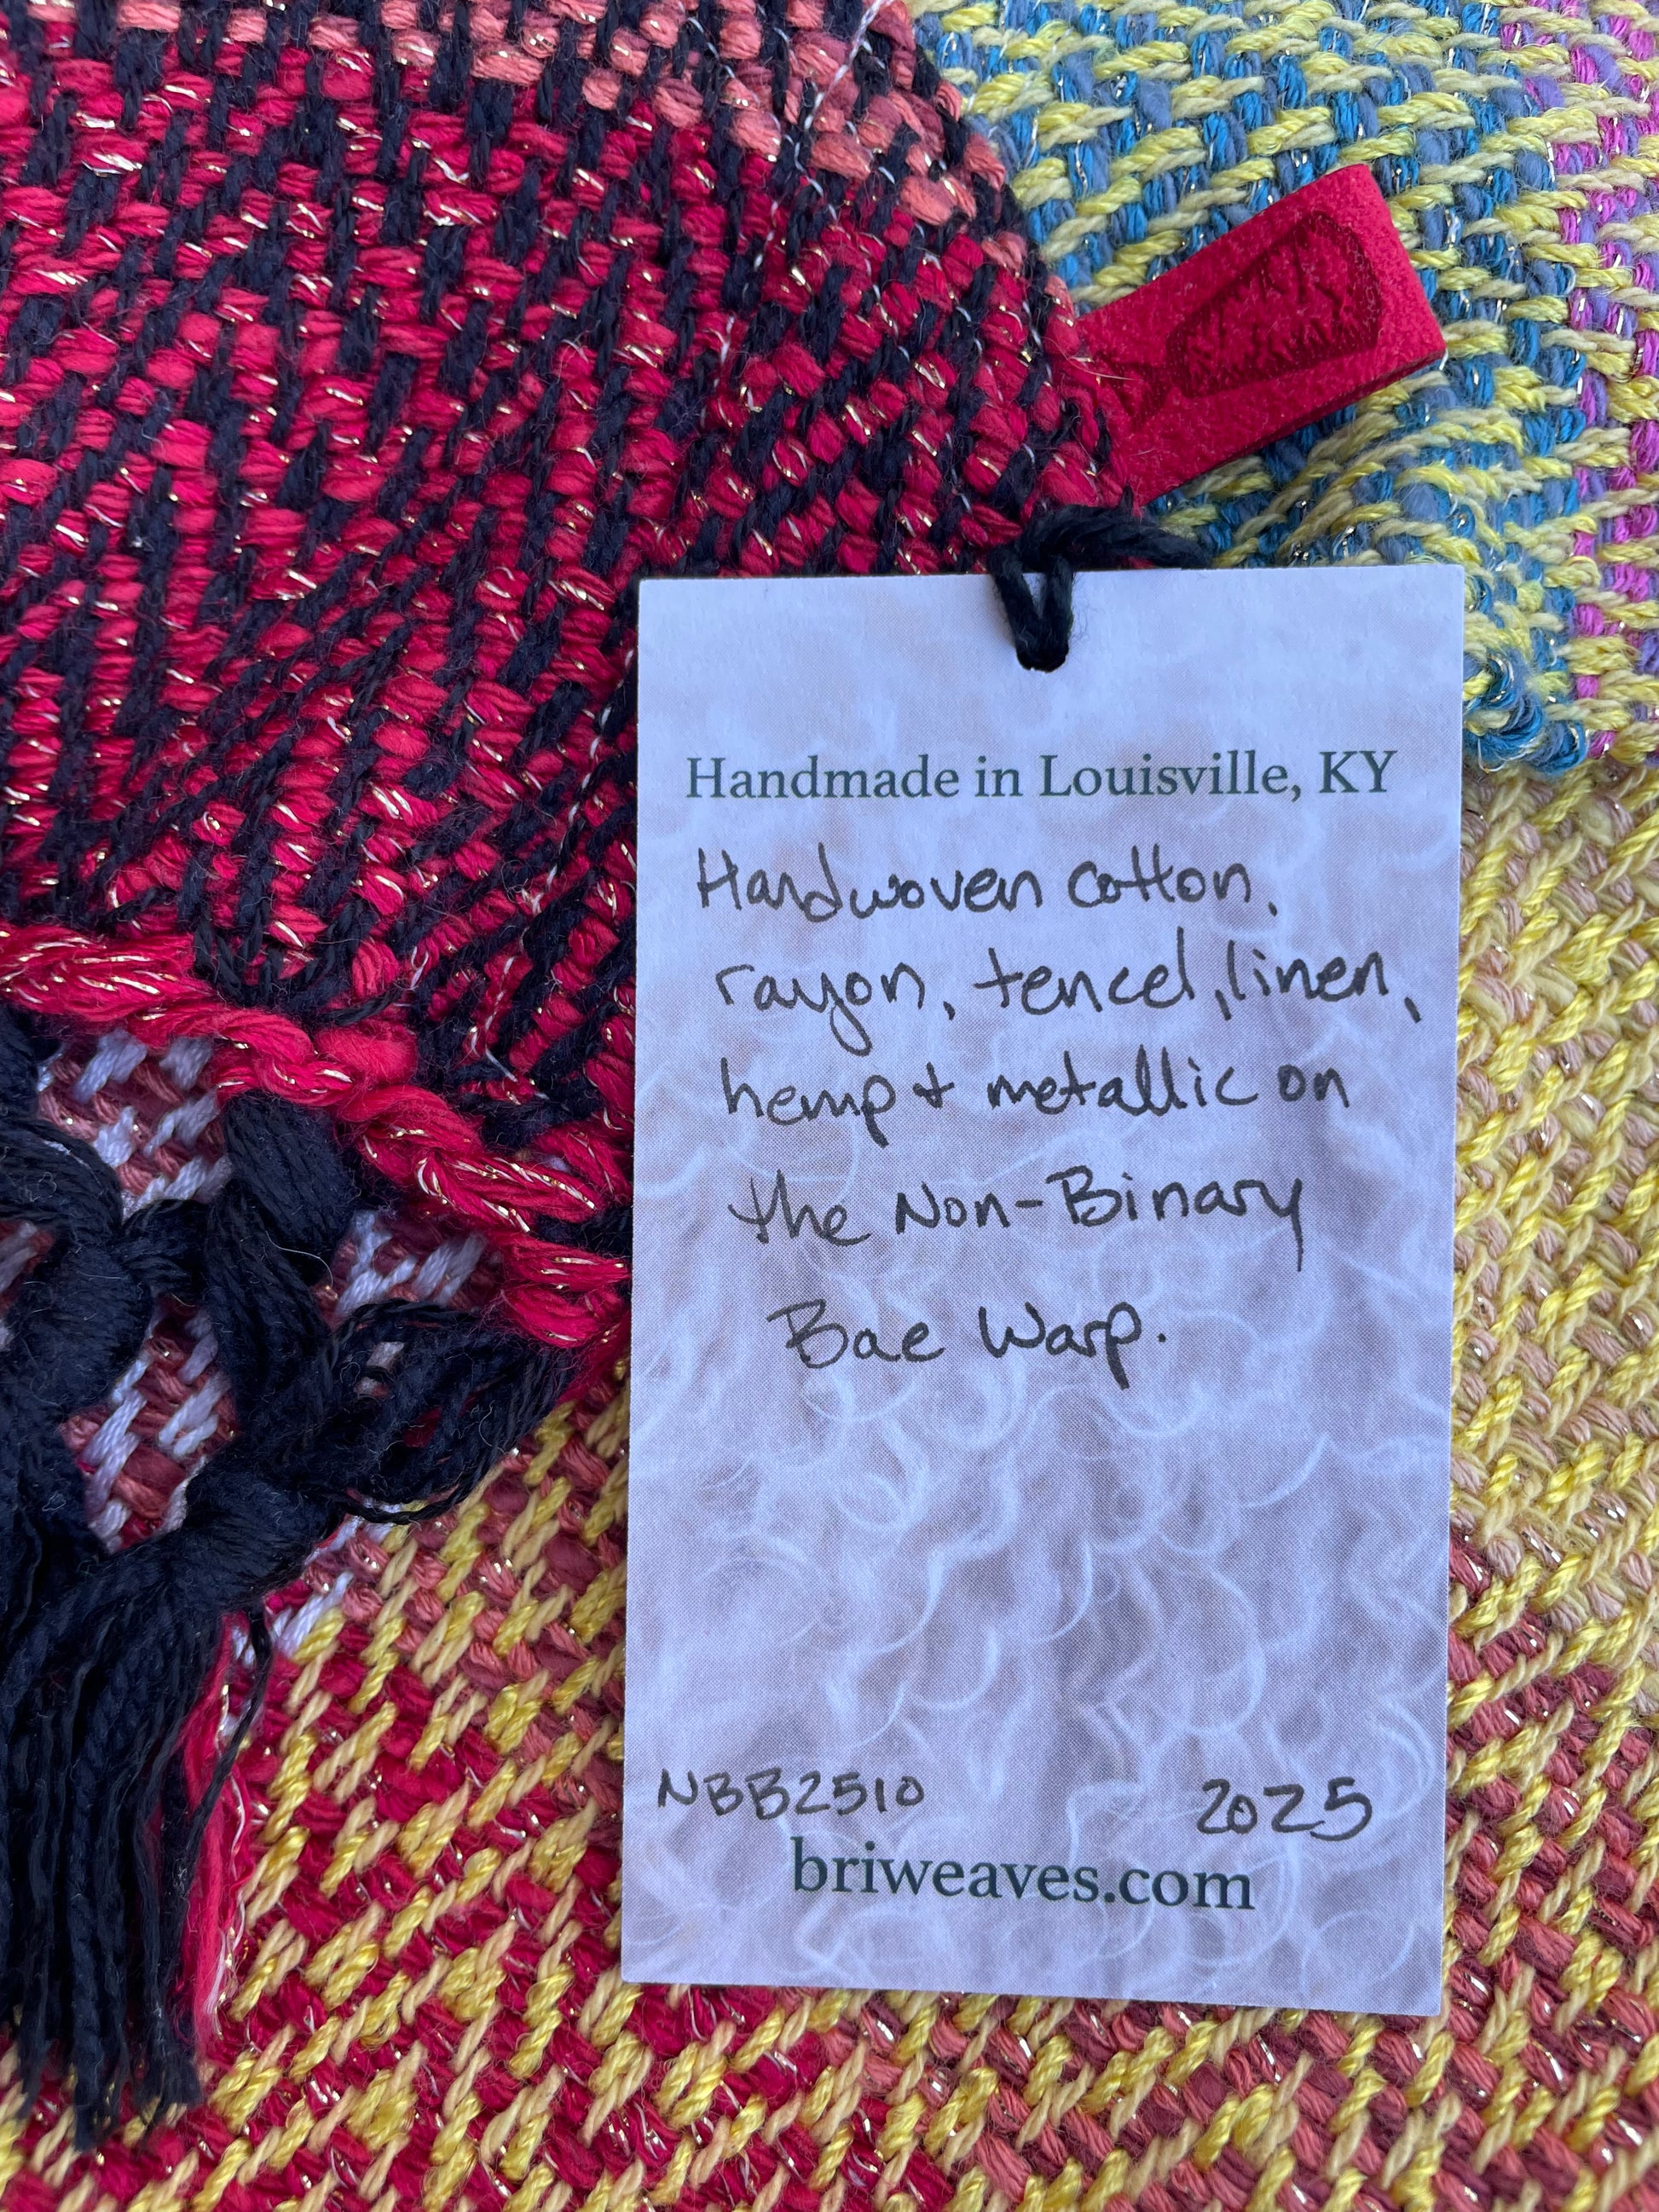 Handmade in Louisville, KY
Handwoven cotton,
rayon, tencel, linen,
hemp + metallic on
the Non-Binary
Bae Warp.
NBB2510 2025
briweaves.com